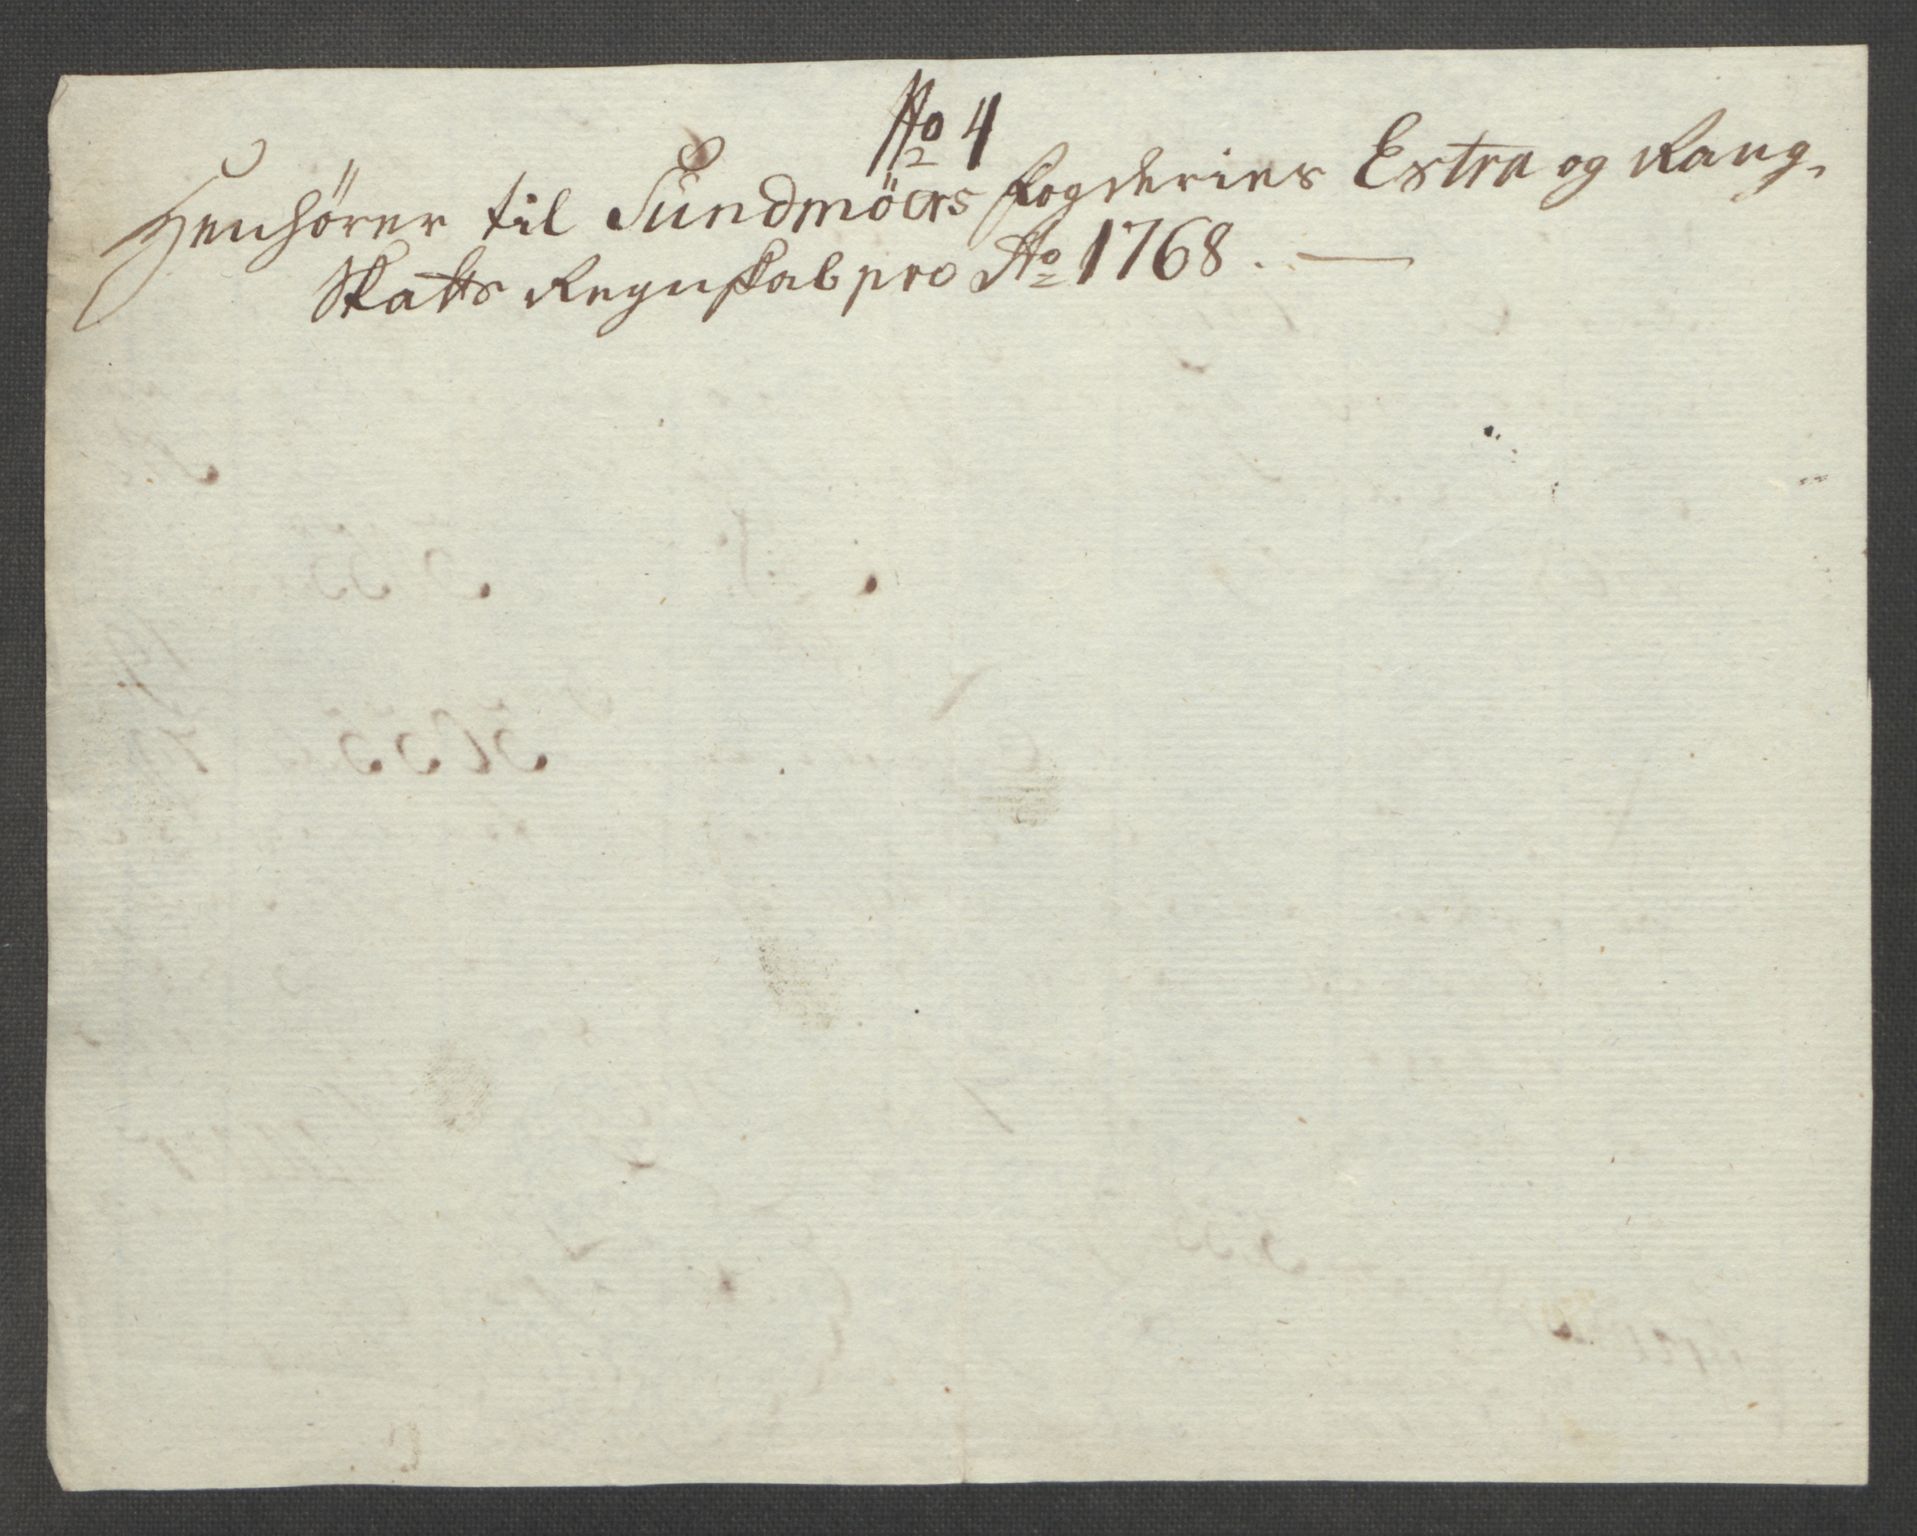 No 4
Henhörer til Sundmöers Fogderies Extra og Rang-
Skatts Regnskab pro Ao 1768.